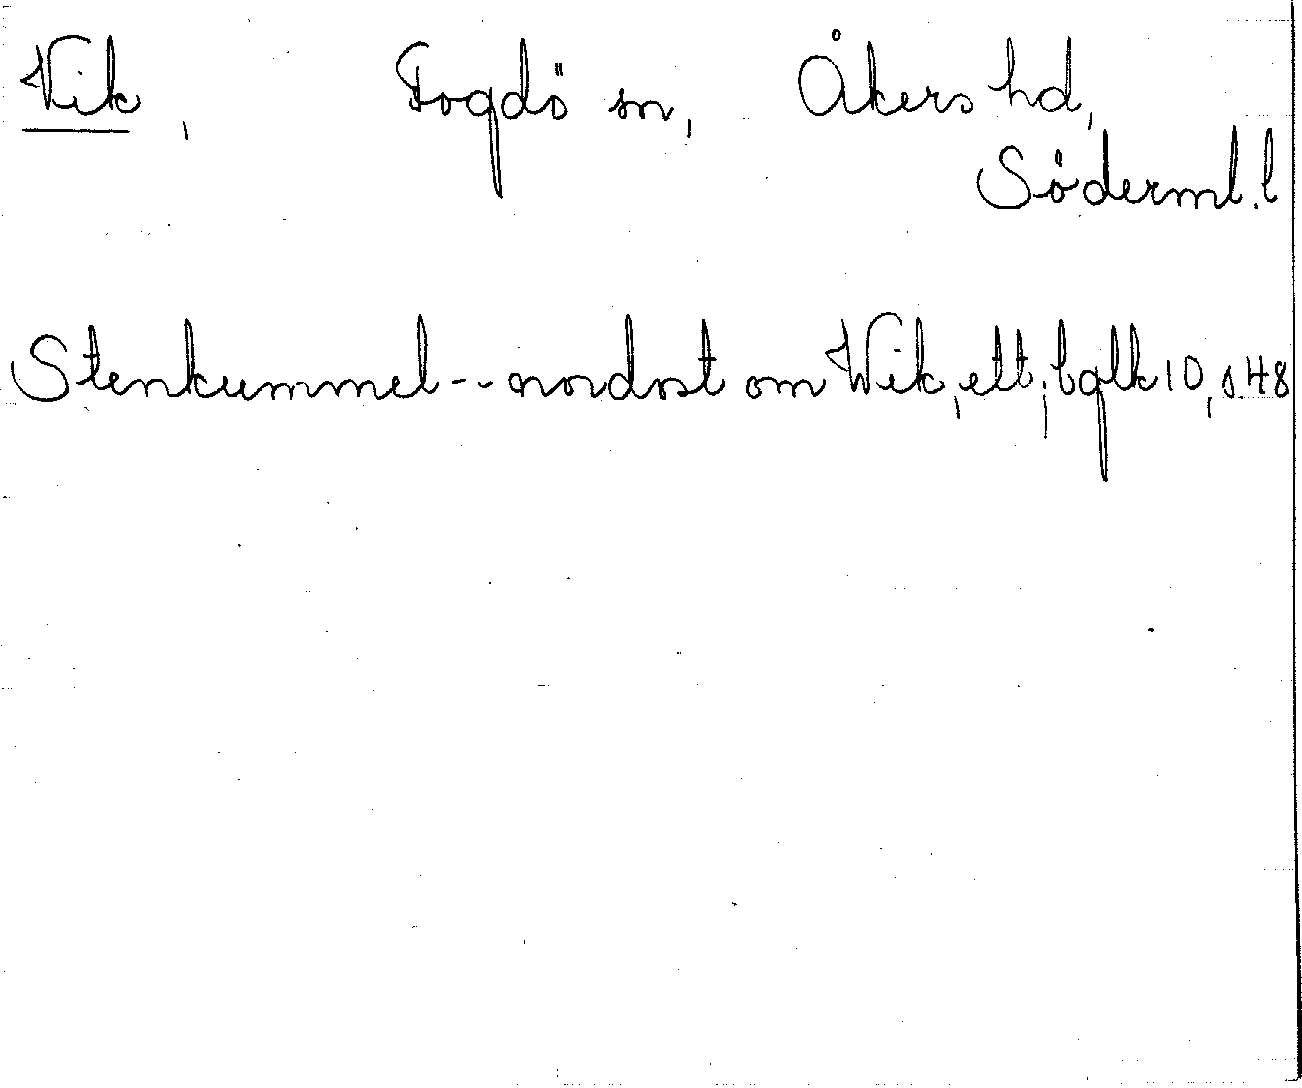 Vik, Fogdö sn, Åkers hd,
Söderml. l
Stenkummel -- nordost om Wik, ett; bglk 10, s. 48